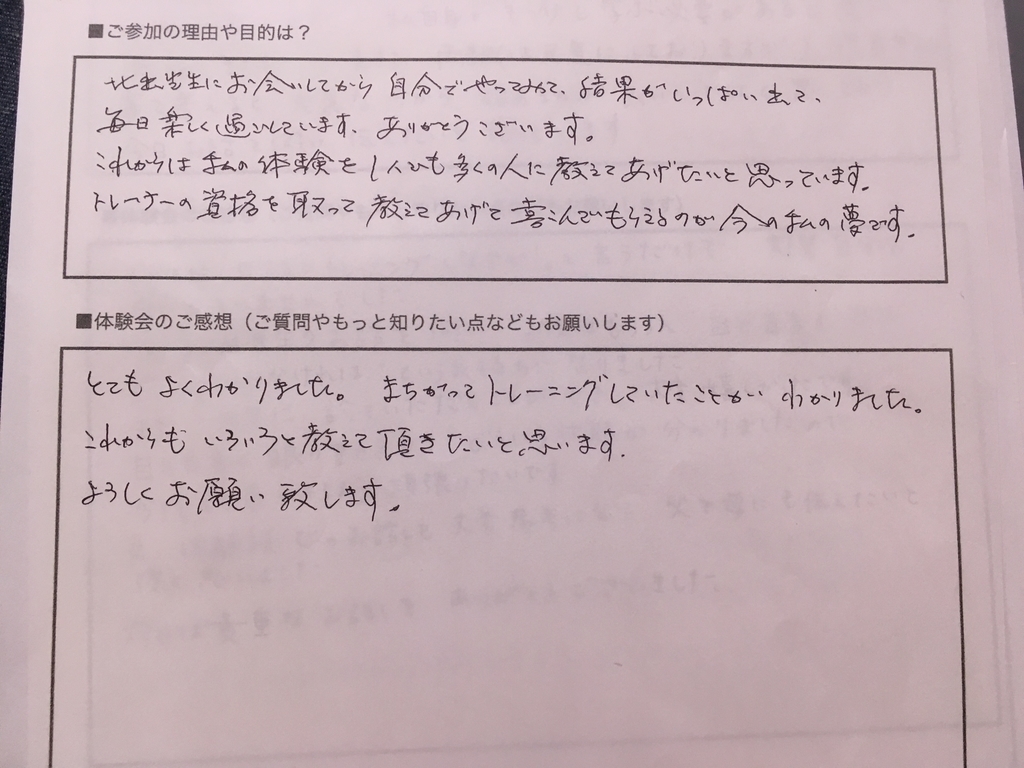 ■ご参加の理由や目的は？
北出先生にお会いしてから 自分でやってみて、結果がいっぱい出て、
毎日楽しく過ごしています、ありがとうございます。
これからは私の体験を1人でも多くの人に教えてあげたいと思っています。
トレーナーの資格を取って教えてあげて喜こんでもらえるのが今の私の夢です。
■体験会のご感想（ご質問やもっと知りたい点などもお願いします）
とてもよくわかりました。まちがってトレーニングしていたことがわかりました。
これからもいろいろと教えて頂きたいと思います.
よろしくお願い致します。